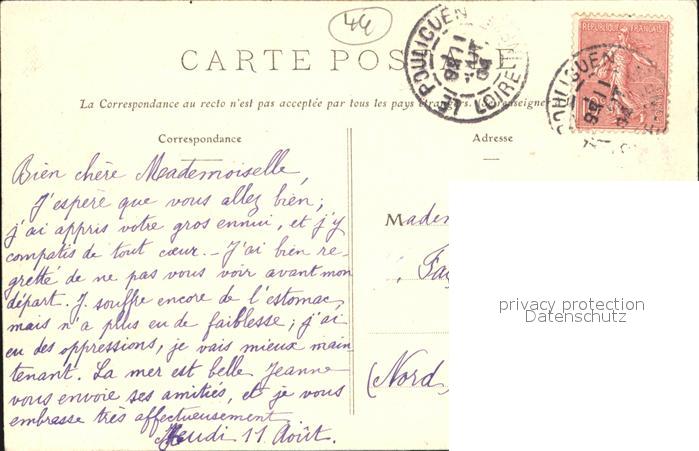 44
CARTE POSTALE
La Correspondance au recto n'est pas acceptée par tous les pays étrangers. (Se renseigner
Correspondance
Adresse
LE POULIGUEN
LOIRE
11
REPUBLIQUE FRANÇAISE
POULIGUEN
11
Bien chère Meademoiselle,
J'espère que vous allez bien;
j'ai appris votre gros ennui, et j'y
compatis de tout cœur. - J'ai bien re-
gretté de ne pas vous voir avant mon
départ. J. souffre encore de l'estomac,
mais n'a plus eu de faiblesse; j'ai
eu des oppressions, je vais mieux main
tenant. La mer est belle Jeanne
vous envoie ses amitiés, et je vous
embrasse très affectueusement
Jeudi 11 Août.
Madem
Fa
(Nord
privacy protection
Datenschutz